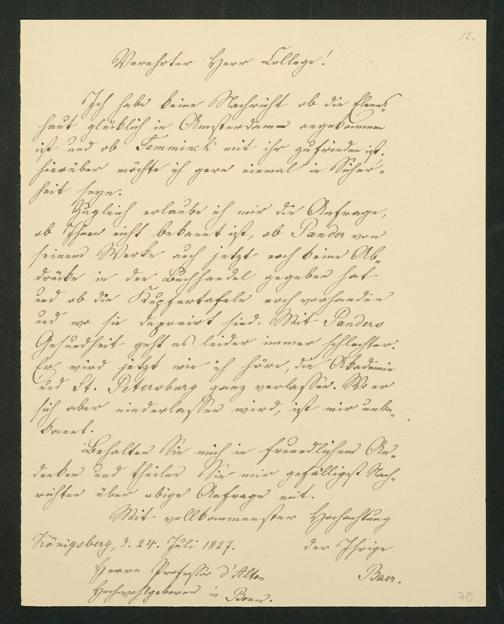 12.
Verehrter Herr College!
Ich habe keine Nachricht ob die Elenns
haut glücklich in Amsterdamm angekommen
ist und ob Temminck mit ihr zufrieden ist,
hierüber möchte ich gern einmal in Sicher-
heit seyn.
Zugleich erlaube ich mir die Anfrage,
ob Ihnen nicht bekannt ist, ob Pander von
seinem Werke auch jetzt noch keine Ab-
drücke in den Buchhandel gegeben hat
und ob die Kupfertafeln noch vorhanden
und wo sie deponirt sind. Mit Panders
Gesundheit geht es leider immer schlechter.
Er wird jetzt wie ich höre, die Akademie
und St. Petersburg ganz verlassen. Wo er
sich aber niederlassen wird, ist mir unbe-
kannt.
Behalten Sie mich in freundlichem An-
denken und theilen Sie mir gefälligst Nach-
richten über obige Anfragen mit.
Mit vollkommenster Hochachtung
Königsberg, d. 24. Juli 1827. der Ihrige
Herrn Professor d'Alton Baer.
Hochwohlgeboren in Bonn.
70